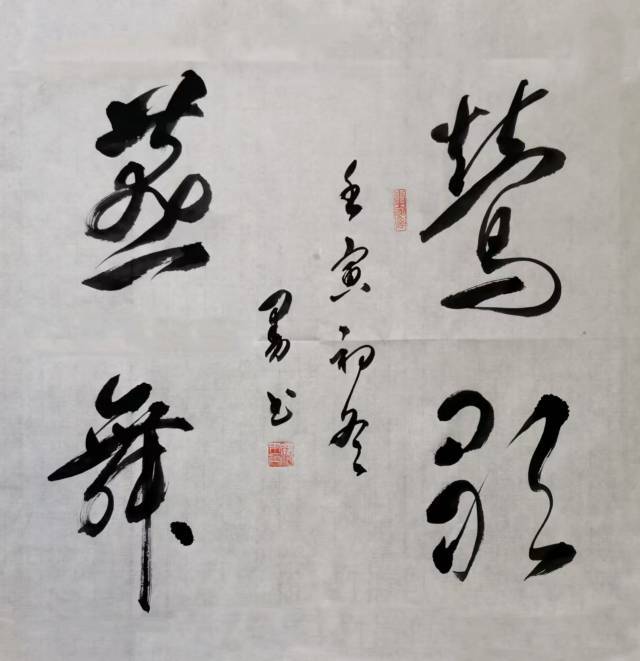 莺歌
燕舞
壬寅初冬
勇书